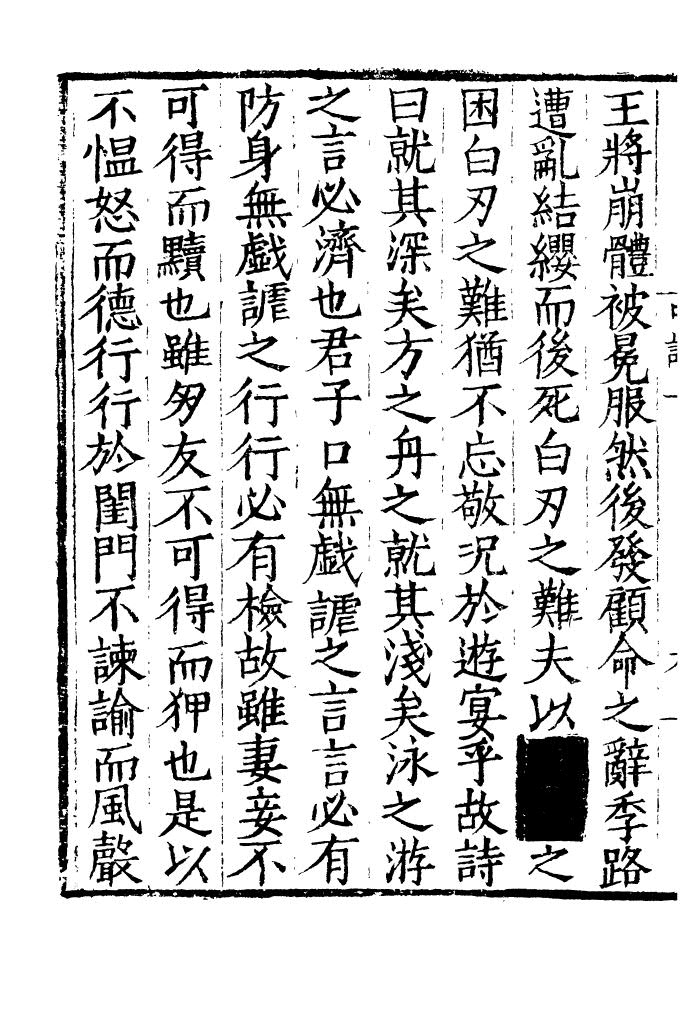 王將崩體被冕服然後發顧命之辭季路
遭亂結纓而後死白刃之難夫以■■之
困白刃之難猶不忘敬况於遊宴乎故詩
曰就其深矣方之舟之就其淺矣泳之游
之言必濟也君子口無戲謔之言言必有
防身無戲謔之行行必有檢故雖妻妾不
可得而黷也雖朋友不可得而狎也是以
不愠怒而德行行於閨門不諫諭而風聲